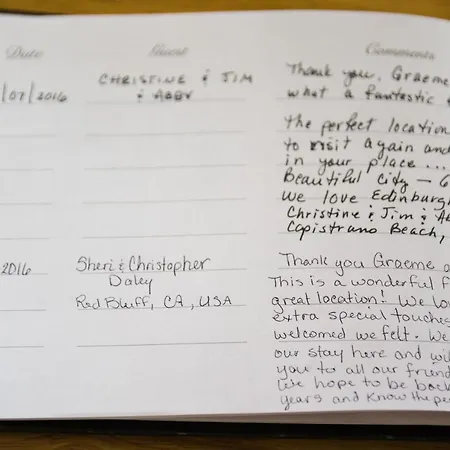 Date Guest Comments
/07/2016 CHRISTINE & JIM
& ABBY
Thank you, Graeme
what a fantastic
the perfect location
to visit again and
in your place ...
Beautiful City –
We love Edinburgh
Christine & Jim & Ab
Capistrano Beach,
2016 Sheri & Christopher
Daley
Red Bluff, CA, USA
Thank you Graeme a
This is a wonderful f
great location! We lo
extra special touches
welcomed we felt. We
our stay here and wil
you to all our friend
We hope to be back
years and know the pe